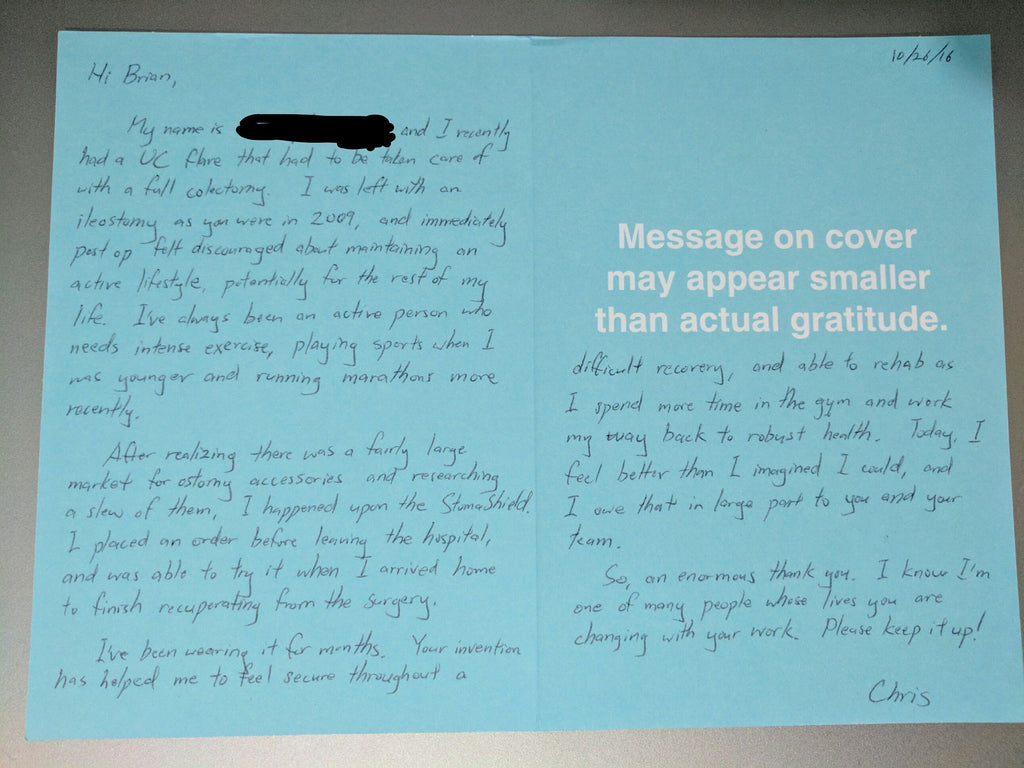 Hi Brian,
My name is and I recently
had a UC flare that had to be taken care of
with a full colectomy. I was left with an
ileostomy as you were in 2009, and immediately
post op felt discouraged about maintaining an
active lifestyle, potentially for the rest of my
life. I've always been an active person who
needs intense exercise, playing sports when I
was younger and running marathons more
recently.
After realizing there was a fairly large
market for ostomy accessories and researching
a slew of them, I happened upon the StomaShield.
I placed an order before leaving the hospital,
and was able to try it when I arrived home
to finish recuperating from the surgery.
I've been wearing it for months. Your invention
has helped me to feel secure throughout a
10/26/16
Message on cover
may appear smaller
than actual gratitude.
difficult recovery, and able to rehab as
I spend more time in the gym and work
my way back to robust health. Today, I
feel better than I imagined I could, and
I owe that in large part to you and your
team.
So, an enormous thank you. I know I'm
one of many people whose lives you are
changing with your work. Please keep it up!
Chris